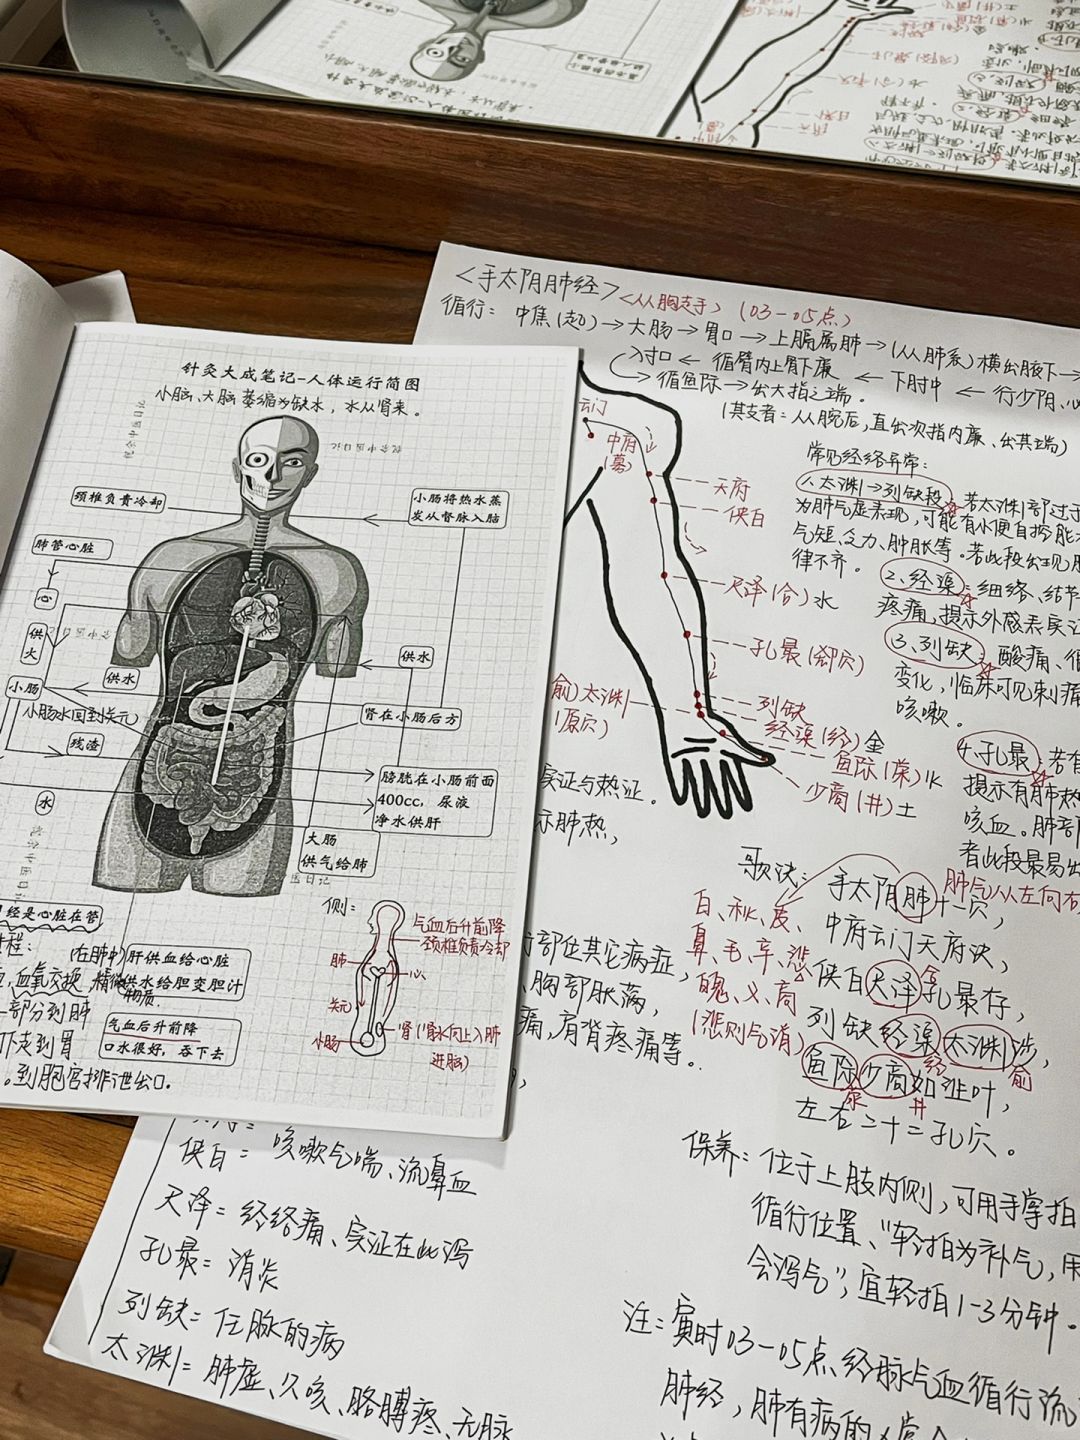 针灸大成笔记-人体运行简图
小脑、大脑萎缩为缺水，水从肾来。
颈椎负责冷却
小肠将热水蒸
发从督脉入脑
肺管心脏
心
供火
供水
供水
小肠
小肠水回到关元
肾在小肠后方
残渣
膀胱在小肠前面
400cc，尿液
净水供肝
水
大肠
供气给肺
经是心脏在管
侧：
气血后升前降
颈椎负责冷却
肺
心
关元
小肠
肾(肾水向上入肺
进脑)
程：
(在肺中)
肝供血给心脏
供水给胆变胆汁
血氧交换
物质.
一部分到肺
气血后升前降
口水很好，吞下去
下走到胃
。到胞宫排泄出口.
<手太阴肺经>
<从胸走手>
(03-05点)
循行：中焦(起)→大肠→胃口→上膈属肺→(从肺系)横出腋下→
入寸口←循臂内上骨下廉←下肘中←行少阴、心
→循鱼际→出大指之端。
(其支者：从腕后，直出次指内廉、出其端)
云门
中府
(募)
天府
侠白
尺泽(合)水
孔最(郄穴)
列缺
经渠(经)金
鱼际(荥)火
少商(井)土
俞)太渊
(原穴)
常见经络异常：
1、太渊→列缺段：若太渊部过于
为肺气虚表现，可能有小便自控能
气短、乏力、肿胀等。若此段出现
律不齐。
2、经渠：细络、结节
疼痛，提示外感表实证
3、列缺、酸痛、
变化，临床可见刺痛
咳嗽。
4、孔最：若有
提示有肺热
咳血。肺部
者此段最易出
实证与热证。
示肺热，
部位其它病症，
、胸部胀满，
痛，肩背疼痛等。
肺气从左向右
歌诀：手太阴肺十一穴，
中府云门天府诀，
侠白尺泽孔最存，
合
列缺经渠太渊涉，
经
俞
鱼际少商如韭叶，
荥
井
左右二十二孔穴。
白、秋、皮、
鼻、毛、辛、悲
魄、义、商
(悲则气消)
保养：位于上肢内侧，可用手掌拍
循行位置、“轻拍为补气，
会泻气”，宜轻拍1-3分钟。
注：寅时03-05点经脉气血循行流
肺经，肺有病的人
侠白＝咳嗽气喘、流鼻血
尺泽＝经络痛、实证在此泻
孔最＝消炎
列缺＝任脉的病
太渊＝肺虚、久咳、胳膊疼、无脉